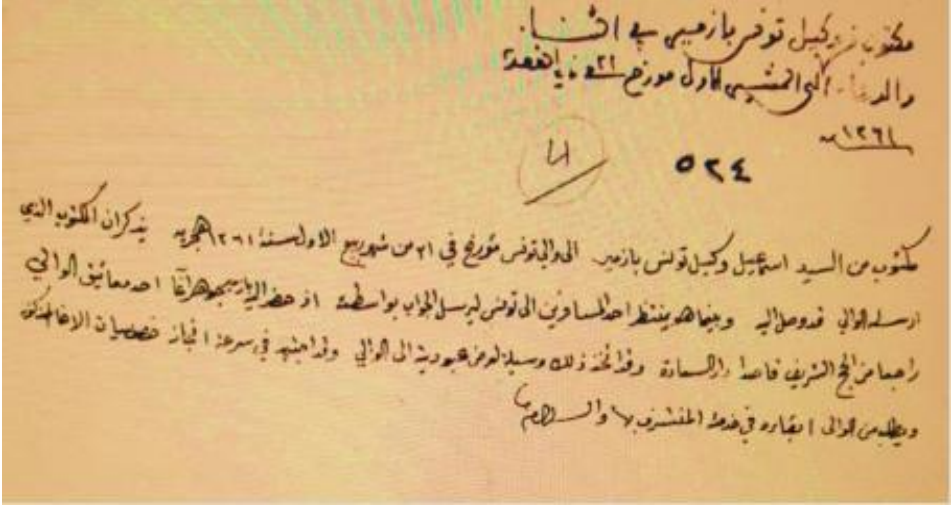 مكتوب من وكيل تونس بازمير في الثنا
والدعاء الى المشير الاول مورخ ٢١ القعدة
١٢٦١
١١
٥٢٤
مكتوب من السيد اسماعيل وكيل تونس بازمير الى والي تونس مؤرخ في ٢١ من شهر ربيع الاول سنة ١٢٦١ هجرية يذكر ان المكتوب الذي
ارسله الوالي قد وصل اليه وبينما هو ينتظر احد المسافرين الى تونس ليرسل الجواب بواسطته اذ حضر اليه جوهر آغا احد معاتيق الوالي
راجعا من الحج الشريف قاصدا دار السعادة وقد اتخذ ذلك وسيلة لعرض عبوديته الى الوالي وقد اجتهد في سرعة انجاز خصوصيات الاغا المذكور
ويطلب من الوالي ابقاءه في خدمة المتشرف بها والسلام